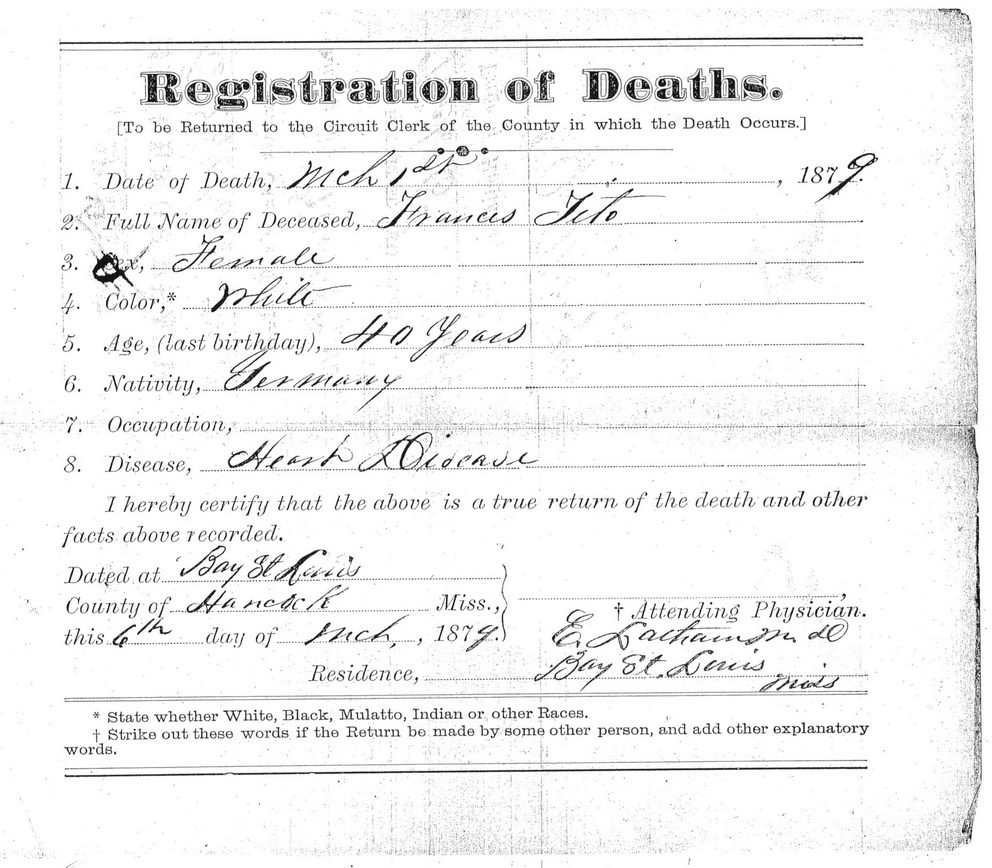 Registration of Deaths.
[To be Returned to the Circuit Clerk of the County in which the Death Occurs.]
1. Date of Death, Mch 1st, 1879.
2. Full Name of Deceased, Frances Tito
3. Sex, Female
4. Color,* White
5. Age, (last birthday), 40 Years
6. Nativity, Germany
7. Occupation,
8. Disease, Heart Disease
I hereby certify that the above is a true return of the death and other
facts above recorded.
Dated at Bay St Louis
County of Hancock Miss.,
† Attending Physician.
this 6th day of Mch, 1879.
E. Latham M.D
Residence, Bay St. Louis
Miss
* State whether White, Black, Mulatto, Indian or other Races.
† Strike out these words if the Return be made by some other person, and add other explanatory
words.